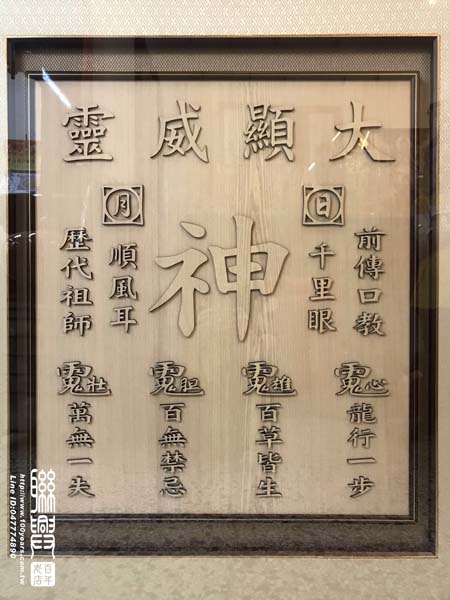 大顯威靈
前傳口教
日
千里眼
神
月
順風耳
歷代祖師
心龍行一步
雄百草皆生
胆百無禁忌
壯萬無一失
百年老店
http://www.100years.com.tw
Line ID:047774890